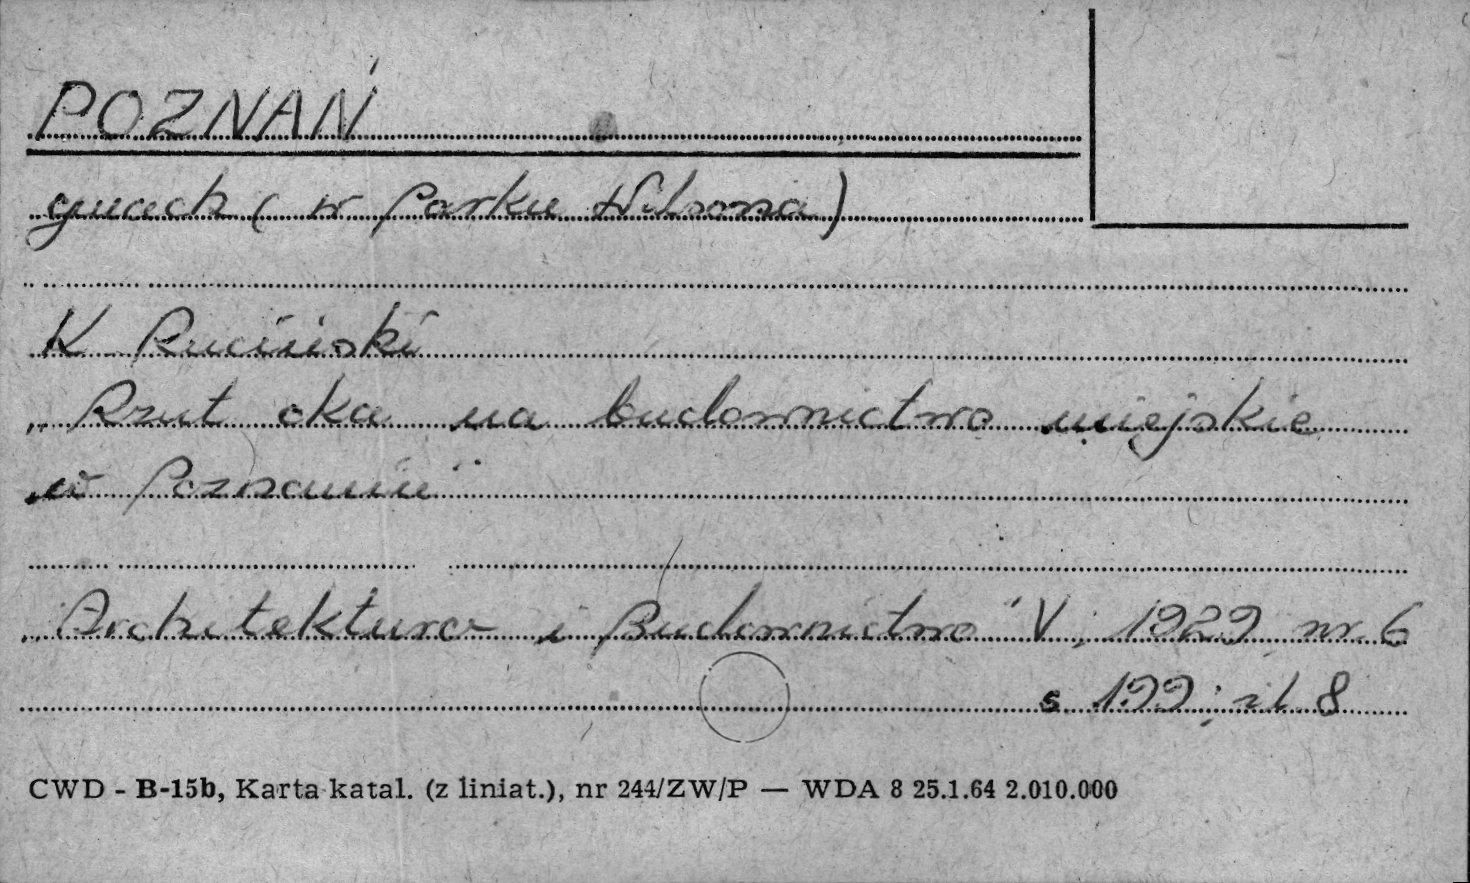 POZNAŃ
gmach (w Parku Wilsona)
K Ruciński
„Rzut oka na budownictwo miejskie
w Poznaniu"
„Architektura i Budownictwo" V, 1929, nr 6
s 199; il 8
CWD - B-15b, Karta katal. (z liniat.), nr 244/ZW/P — WDA 8 25.1.64 2.010.000